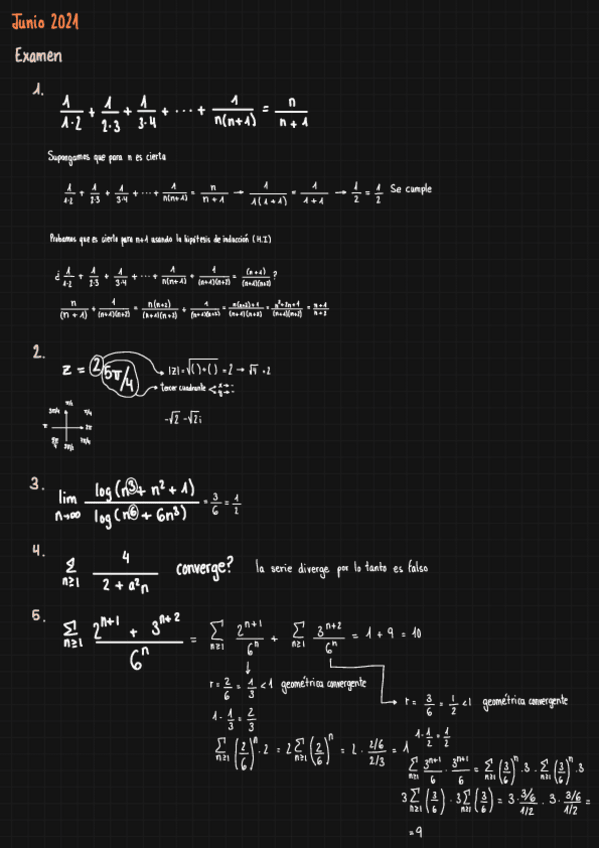 Junio 2021
Examen
1. 1/(1·2) + 1/(2·3) + 1/(3·4) + ··· + 1/(n(n+1)) = n/(n+1)
Supongamos que para n es cierta
1/(1·2) + 1/(2·3) + 1/(3·4) + ··· + 1/(n(n+1)) = n/(n+1) → 1/(1(1+1)) = 1/(1+1) → 1/2 = 1/2 Se cumple
Probamos que es cierta para n+1 usando la hipótesis de inducción (H.I)
¿ 1/(1·2) + 1/(2·3) + 1/(3·4) + ··· + 1/(n(n+1)) + 1/((n+1)(n+2)) = (n+1)/((n+1)(n+2)) ?
n/(n+1) + 1/((n+1)(n+2)) = n(n+2)/((n+1)(n+2)) + 1/((n+1)(n+2)) = (n(n+2)+1)/((n+1)(n+2)) = (n²+2n+1)/((n+1)(n+2)) = (n+1)/(n+2)
2. z = 2 5π/4
|z| = √( )+( ) = 2 → √4 = 2
tercer cuadrante x → - y → -
-√2 -√2i
π/2
3π/4 π/4
π 2π
3π/2
3. lim n→∞ log(n³ + n² + 1)/log(n⁶ + 6n³) = 3/6 = 1/2
4. Σ n≥1 4/(2 + a²n) converge? la serie diverge por lo tanto es falso
5. Σ n≥1 (2ⁿ⁺¹ + 3ⁿ⁺²)/6ⁿ = Σ n≥1 2ⁿ⁺¹/6ⁿ + Σ n≥1 3ⁿ⁺²/6ⁿ = 1 + 9 = 10
r = 2/6 = 1/3 < 1 geométrica convergente
1 - 1/3 = 2/3
Σ n≥1 (2/6)ⁿ · 2 = 2 Σ n≥1 (2/6)ⁿ = 2 · (2/6)/(2/3) = 1
r = 3/6 = 1/2 < 1 geométrica convergente
1 - 1/2 = 1/2
Σ n≥1 3ⁿ⁺¹/6 · 3ⁿ⁺¹/6 = Σ n≥1 (3/6)ⁿ · 3 · Σ n≥1 (3/6)ⁿ · 3
3 Σ n≥1 (3/6) · 3 Σ n≥1 (3/6) = 3 · (3/6)/(1/2) · 3 · (3/6)/(1/2) =
= 9